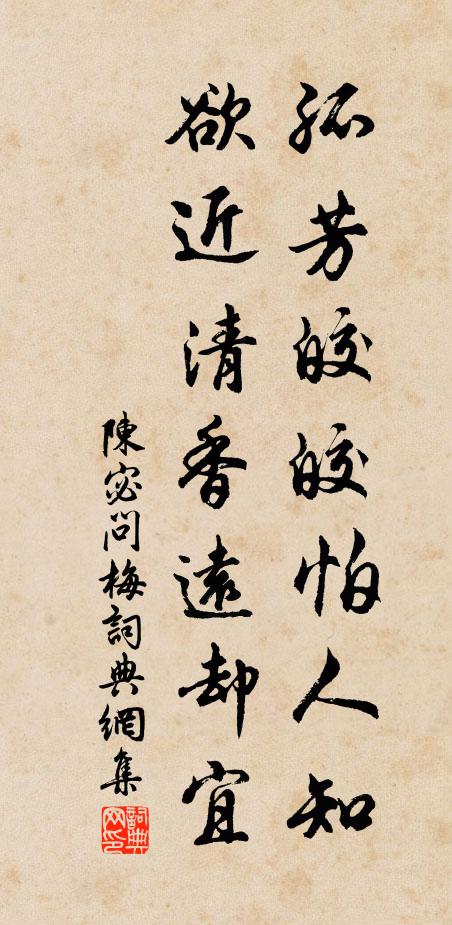 孤芳皎皎怕人知
欲近清香遠却宜
陳宓問梅詞典網集
詞典网印